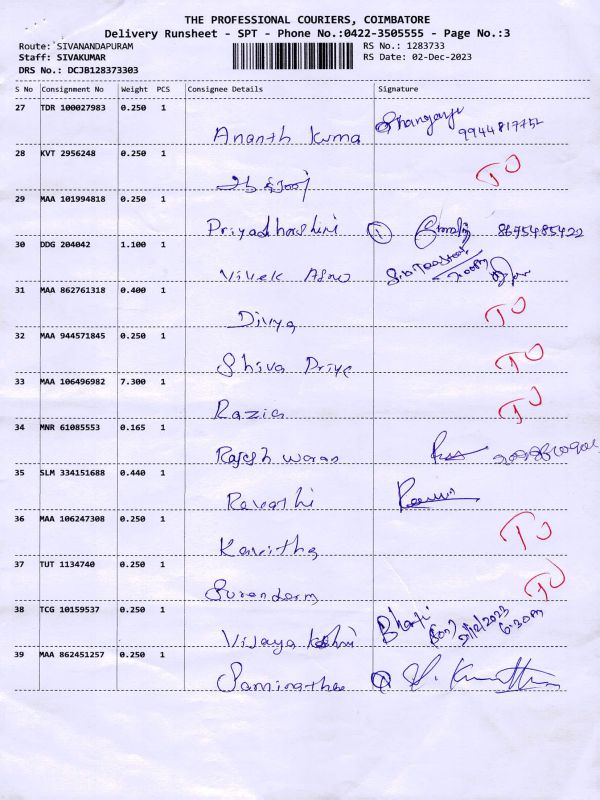 THE PROFESSIONAL COURIERS, COIMBATORE
Delivery Runsheet - SPT - Phone No.:0422-3505555 - Page No.:3
Route: SIVANANDAPURAM RS No.: 1283733
Staff: SIVAKUMAR RS Date: 02-Dec-2023
DRS No.: DCJB128373303
S No Consignment No Weight PCS Consignee Details Signature
27 TDR 100027983 0.250 1
Ananth Kuma 9944817752
28 KVT 2956248 0.250 1
TO
29 MAA 101994818 0.250 1
Priyadharshini 8695485422
30 DDG 204042 1.100 1
Vivek
31 MAA 862761318 0.400 1
Divya TO
32 MAA 944571845 0.250 1
Shiva Priya TO
33 MAA 106496982 7.300 1
Razia TO
34 MNR 61085553 0.165 1
Rajesh waran
35 SLM 334151688 0.440 1
Revathi
36 MAA 106247308 0.250 1
Kavitha TO
37 TUT 1134740 0.250 1
Surenderm TO
38 TCG 10159537 0.250 1
Vijaya Bharti (Son) 2/12/2023
6:30pm
39 MAA 862451257 0.250 1
Saminatha